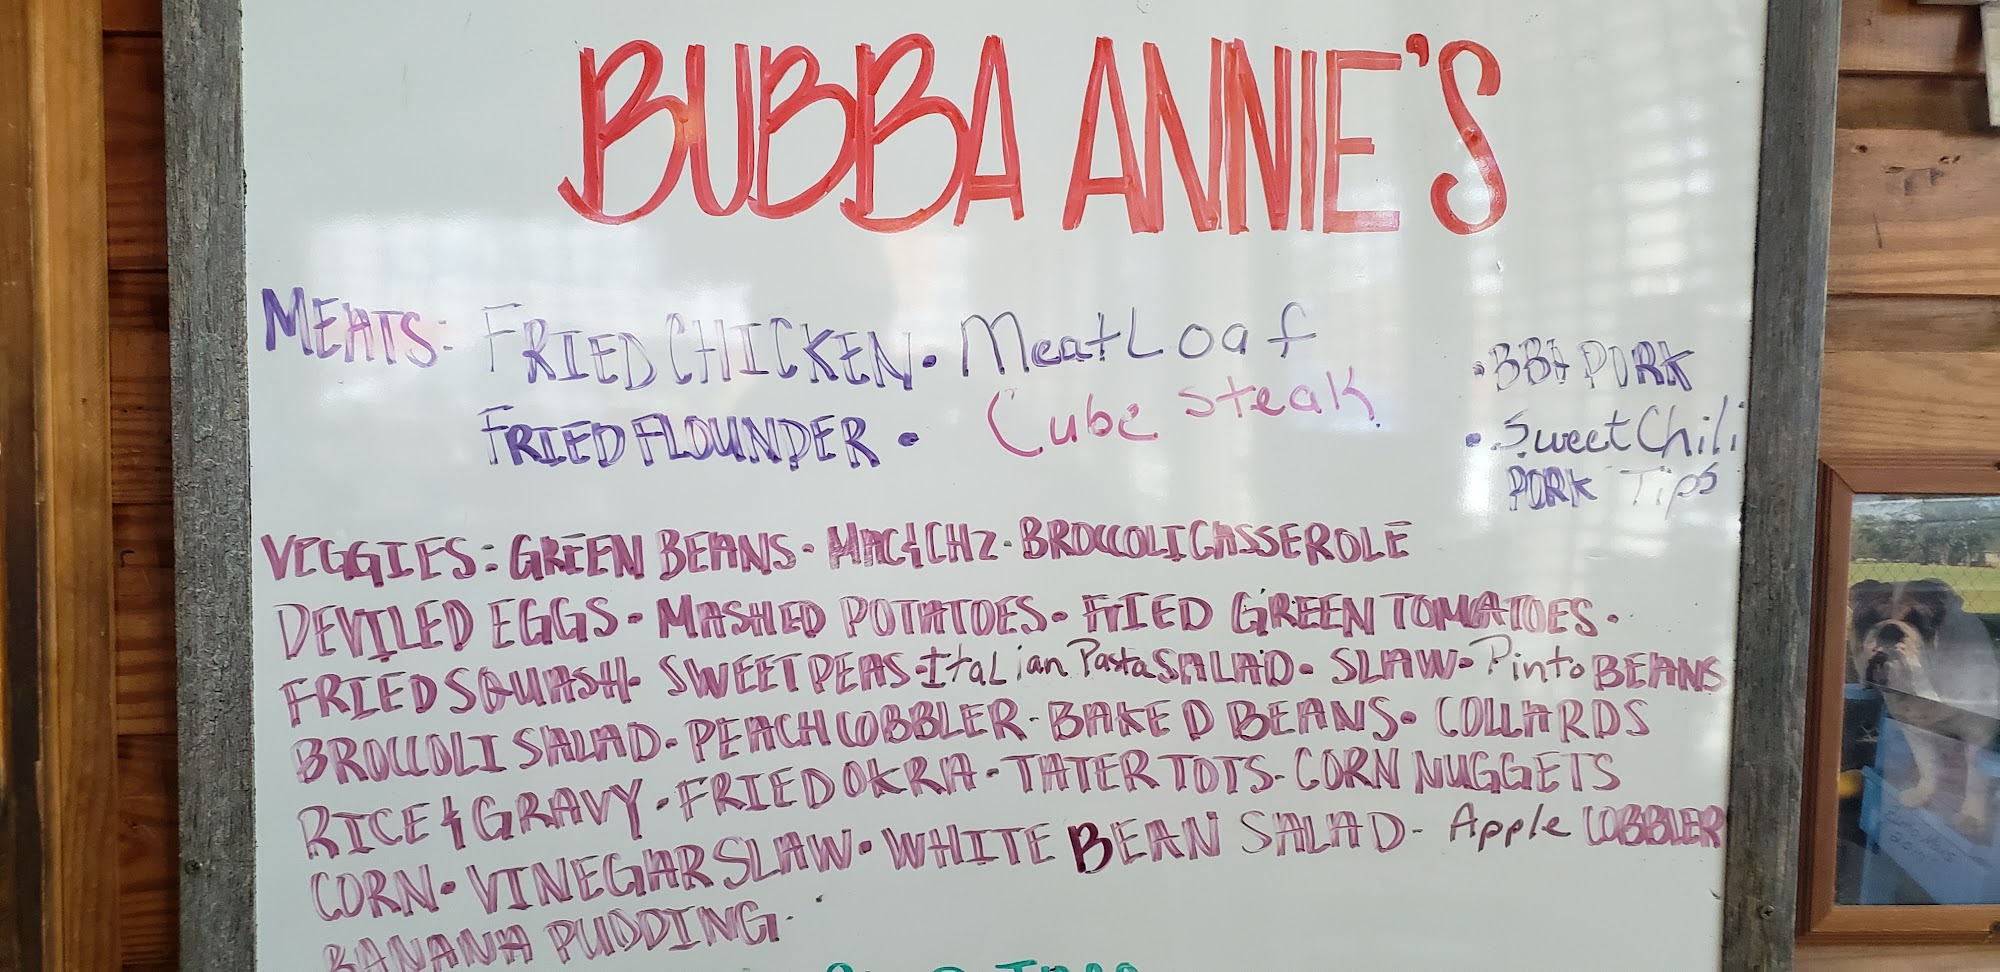 BUBBA ANNIE'S
MEATS: FRIED CHICKEN • MeatLoaf
• BBQ PORK
FRIED FLOUNDER • Cube Steak
• Sweet Chili
PORK Tips
VEGGIES: GREEN BEANS • MAC & CHZ • BROCCOLI CASSEROLE
DEVILED EGGS • MASHED POTATOES • FRIED GREEN TOMATOES •
FRIED SQUASH • SWEET PEAS • Italian Pasta SALAD • SLAW • Pinto BEANS
BROCCOLI SALAD • PEACH COBBLER • BAKED BEANS • COLLARDS
RICE & GRAVY • FRIED OKRA • TATER TOTS • CORN NUGGETS
CORN • VINEGAR SLAW • WHITE BEAN SALAD - Apple COBBLER
BANANA PUDDING •